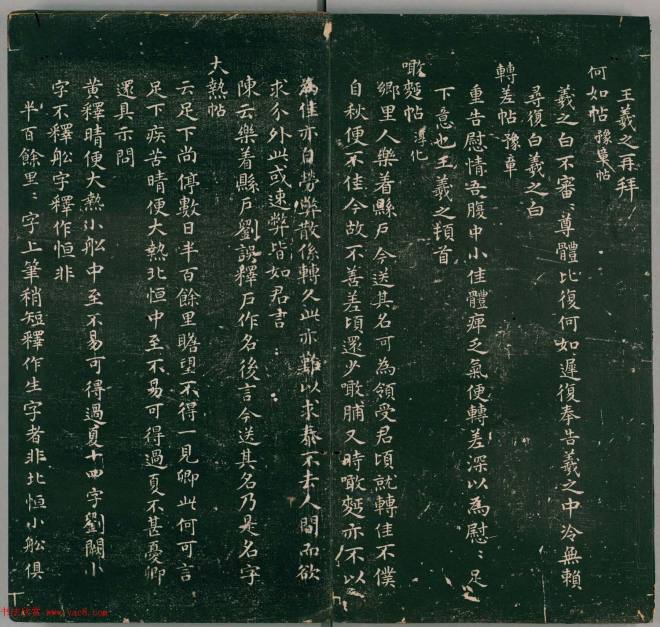 王羲之再拜
何如帖 豫章帖
羲之白不審〻尊體比復何如遲復奉告羲之中冷無賴
尋復白羲之白
轉差帖 豫章
重告慰情吾腹中小佳體痺乏氣便轉差深以為慰〻足
下意也王羲之頓首
噉麨帖 淳化
鄉里人樂着縣戶今送其名可為領受君頃就轉佳不僕
自秋便不佳今故不善差頃還少噉脯又時噉麨亦不以
為佳亦自勞弊散係轉久此亦難以求泰不去人間而欲
求分外此或速弊皆如君書〻
陳云樂着縣戶劉誤釋戶作名後言今送其名乃是名字
大熱帖
云足下尚停數日半百餘里瞻望不得一見卿此何可言
足下疾苦晴便大熱北恒中至不易可得過夏不甚憂卿
還具示問
黃釋晴便大熱小舩中至不易可得過夏十四字劉闕小
字不釋舩字釋作恒非
半百餘里〻字上筆稍短釋作生字者非北恒小舩俱
书法欣赏 www.yac8.com